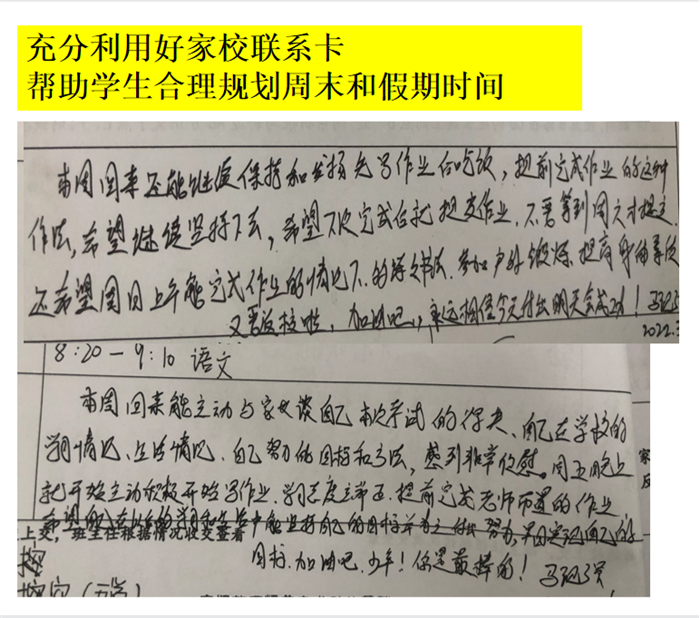 充分利用好家校联系卡
帮助学生合理规划周末和假期时间
本周回来还能继续保持和发扬先写作业后吃饭，提前完成作业的这种
作法，希望继续坚持下去，希望下次完成后就提交作业，不要等到周六才提交
还希望周日上午能完成作业的情况下，参加户外锻炼，提高身体素质
又要返校啦，加油吧，永远相信今天付出明天会成功！
2022.3
8:20－9:10 语文
本周回来能主动与家长谈自己本次考试的得失、自己在学校的
学习情况、生活情况、自己努力的目标和方法，感到非常欣慰。周五晚上
就开始主动积极开始写作业，学习态度立竿，提前完成老师布置的作业，
希望自己在以后的学习和生活中能坚持自己的目标并为之付出努力，早日实现自己的
上交，班主任根据情况收交查看
目标，加油吧，少年！你是最棒的！